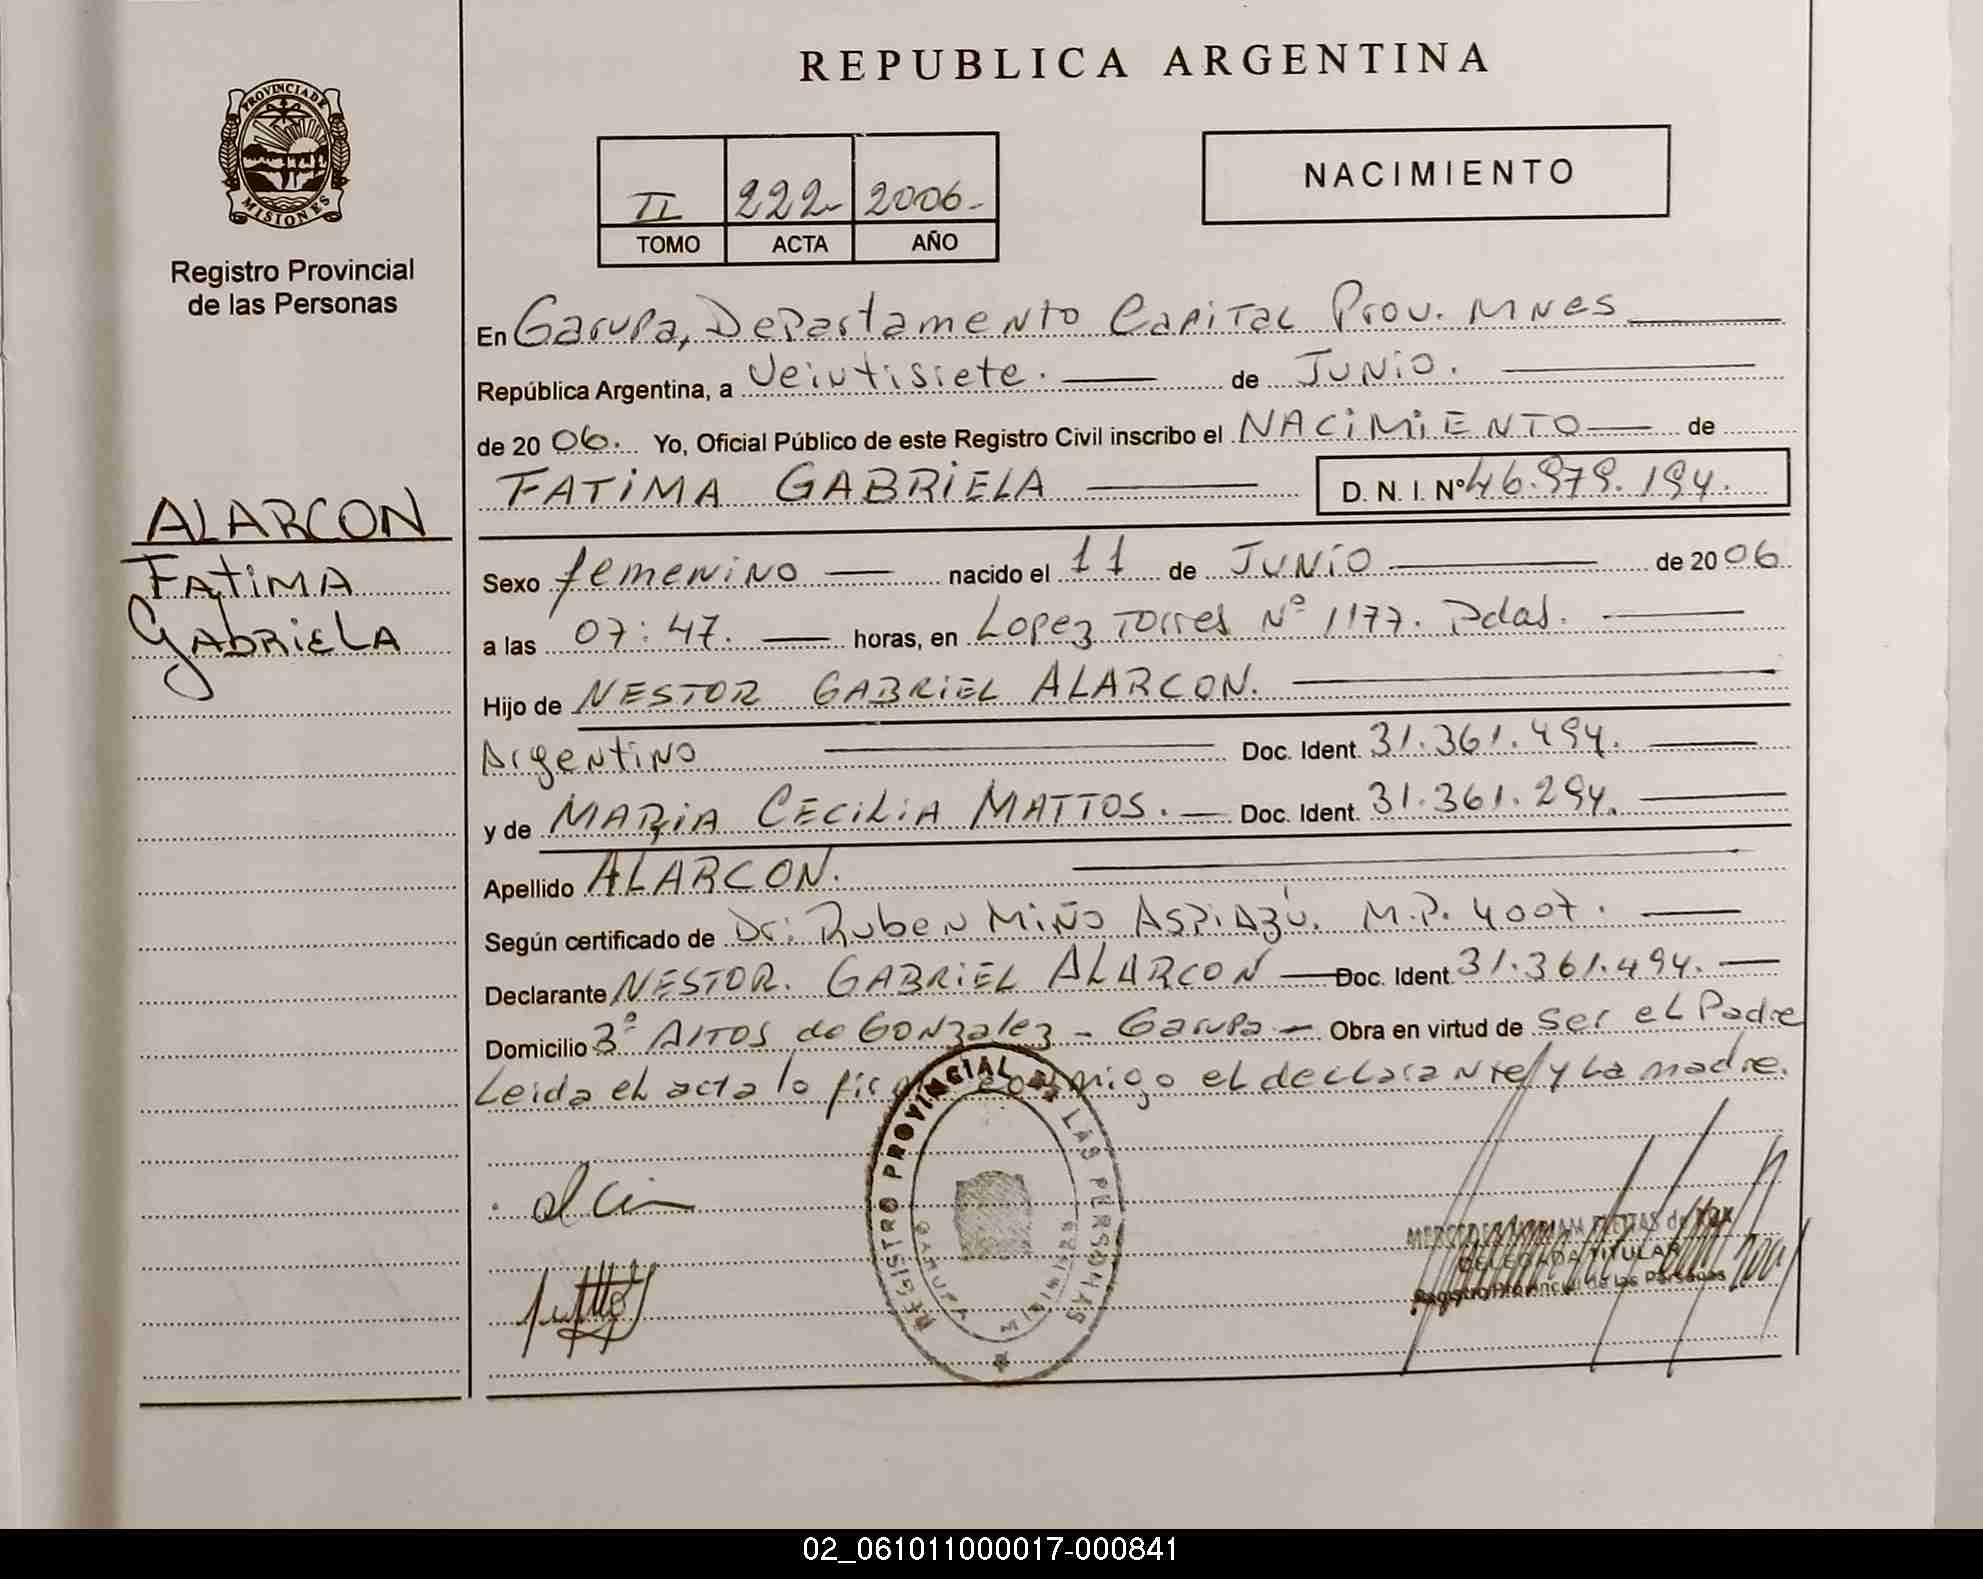 REPUBLICA ARGENTINA
PROVINCIA DE
MISIONES
Registro Provincial
de las Personas
II 222 2006
TOMO ACTA AÑO
NACIMIENTO
ALARCON
FATIMA
GABRIELA
En Garupa, Departamento Capital Prov. MNES
República Argentina, a Veintisiete. de JUNIO.
de 2006. Yo, Oficial Público de este Registro Civil inscribo el NACIMIENTO de
FATIMA GABRIELA D. N. I. Nº 46.979.194.
Sexo femenino nacido el 11 de JUNIO de 2006
a las 07:47. horas, en Lopez Torres Nº 1177. Pdas.
Hijo de NESTOR GABRIEL ALARCON.
Argentino Doc. Ident. 31.361.494.
y de MARIA CECILIA MATTOS. Doc. Ident. 31.361.294.
Apellido ALARCON.
Según certificado de Dr: Ruben Miño Aspiazú. M.P. 4007.
Declarante NESTOR. GABRIEL ALARCON Doc. Ident. 31.361.494.
Domicilio 3º Altos de Gonzalez - Garupa - Obra en virtud de ser el Padre
Leida el acta lo conmigo el declarante y la madre.
REGISTRO PROVINCIAL DE LAS PERSONAS
GARUPA MISIONES
DELEGADA TITULAR
Registro Provincial de las Personas
02_061011000017-000841